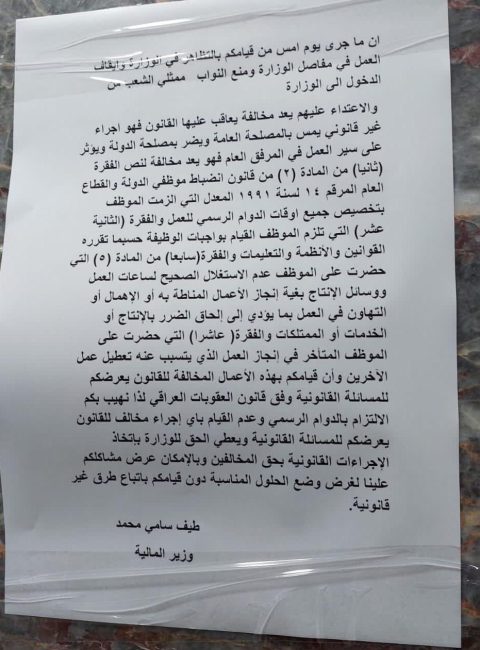 ان ما جرى يوم امس من قيامكم بالتظاهر في الوزارة وايقاف
العمل في مفاصل الوزارة ومنع النواب ممثلي الشعب من
الدخول الى الوزارة
والاعتداء عليهم يعد مخالفة يعاقب عليها القانون فهو اجراء
غير قانوني يمس بالمصلحة العامة ويضر بمصلحة الدولة ويؤثر
على سير العمل في المرفق العام فهو يعد مخالفة لنص الفقرة
(ثانيا) من المادة (٢) من قانون انضباط موظفي الدولة والقطاع
العام المرقم ١٤ لسنة ١٩٩١ المعدل التي الزمت الموظف
بتخصيص جميع اوقات الدوام الرسمي للعمل والفقرة (الثانية
عشر) التي تلزم الموظف القيام بواجبات الوظيفة حسبما تقرره
القوانين والأنظمة والتعليمات والفقرة(سابعا) من المادة (٥) التي
حضرت على الموظف عدم الاستغلال الصحيح لساعات العمل
ووسائل الإنتاج بغية إنجاز الأعمال المناطة به أو الإهمال أو
التهاون في العمل بما يؤدي إلى إلحاق الضرر بالإنتاج أو
الخدمات أو الممتلكات والفقرة( عاشرا) التي حضرت على
الموظف المتأخر في إنجاز العمل الذي يتسبب عنه تعطيل عمل
الآخرين وأن قيامكم بهذه الأعمال المخالفة للقانون يعرضكم
للمسائلة القانونية وفق قانون العقوبات العراقي لذا نهيب بكم
الالتزام بالدوام الرسمي وعدم القيام باي إجراء مخالف للقانون
يعرضكم للمسائلة القانونية ويعطي الحق للوزارة بإتخاذ
الإجراءات القانونية بحق المخالفين وبالإمكان عرض مشاكلكم
علينا لغرض وضع الحلول المناسبة دون قيامكم باتباع طرق غير
قانونية.
طيف سامي محمد
وزير المالية